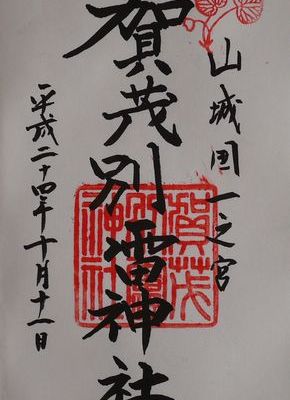 山城国一之宮
賀茂別雷神社
平成二十四年十月十一日
賀茂
別雷
神社